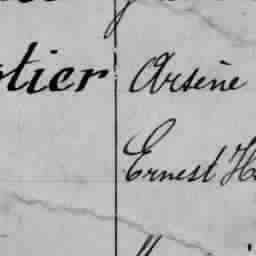 otier Arsène
Ernest H